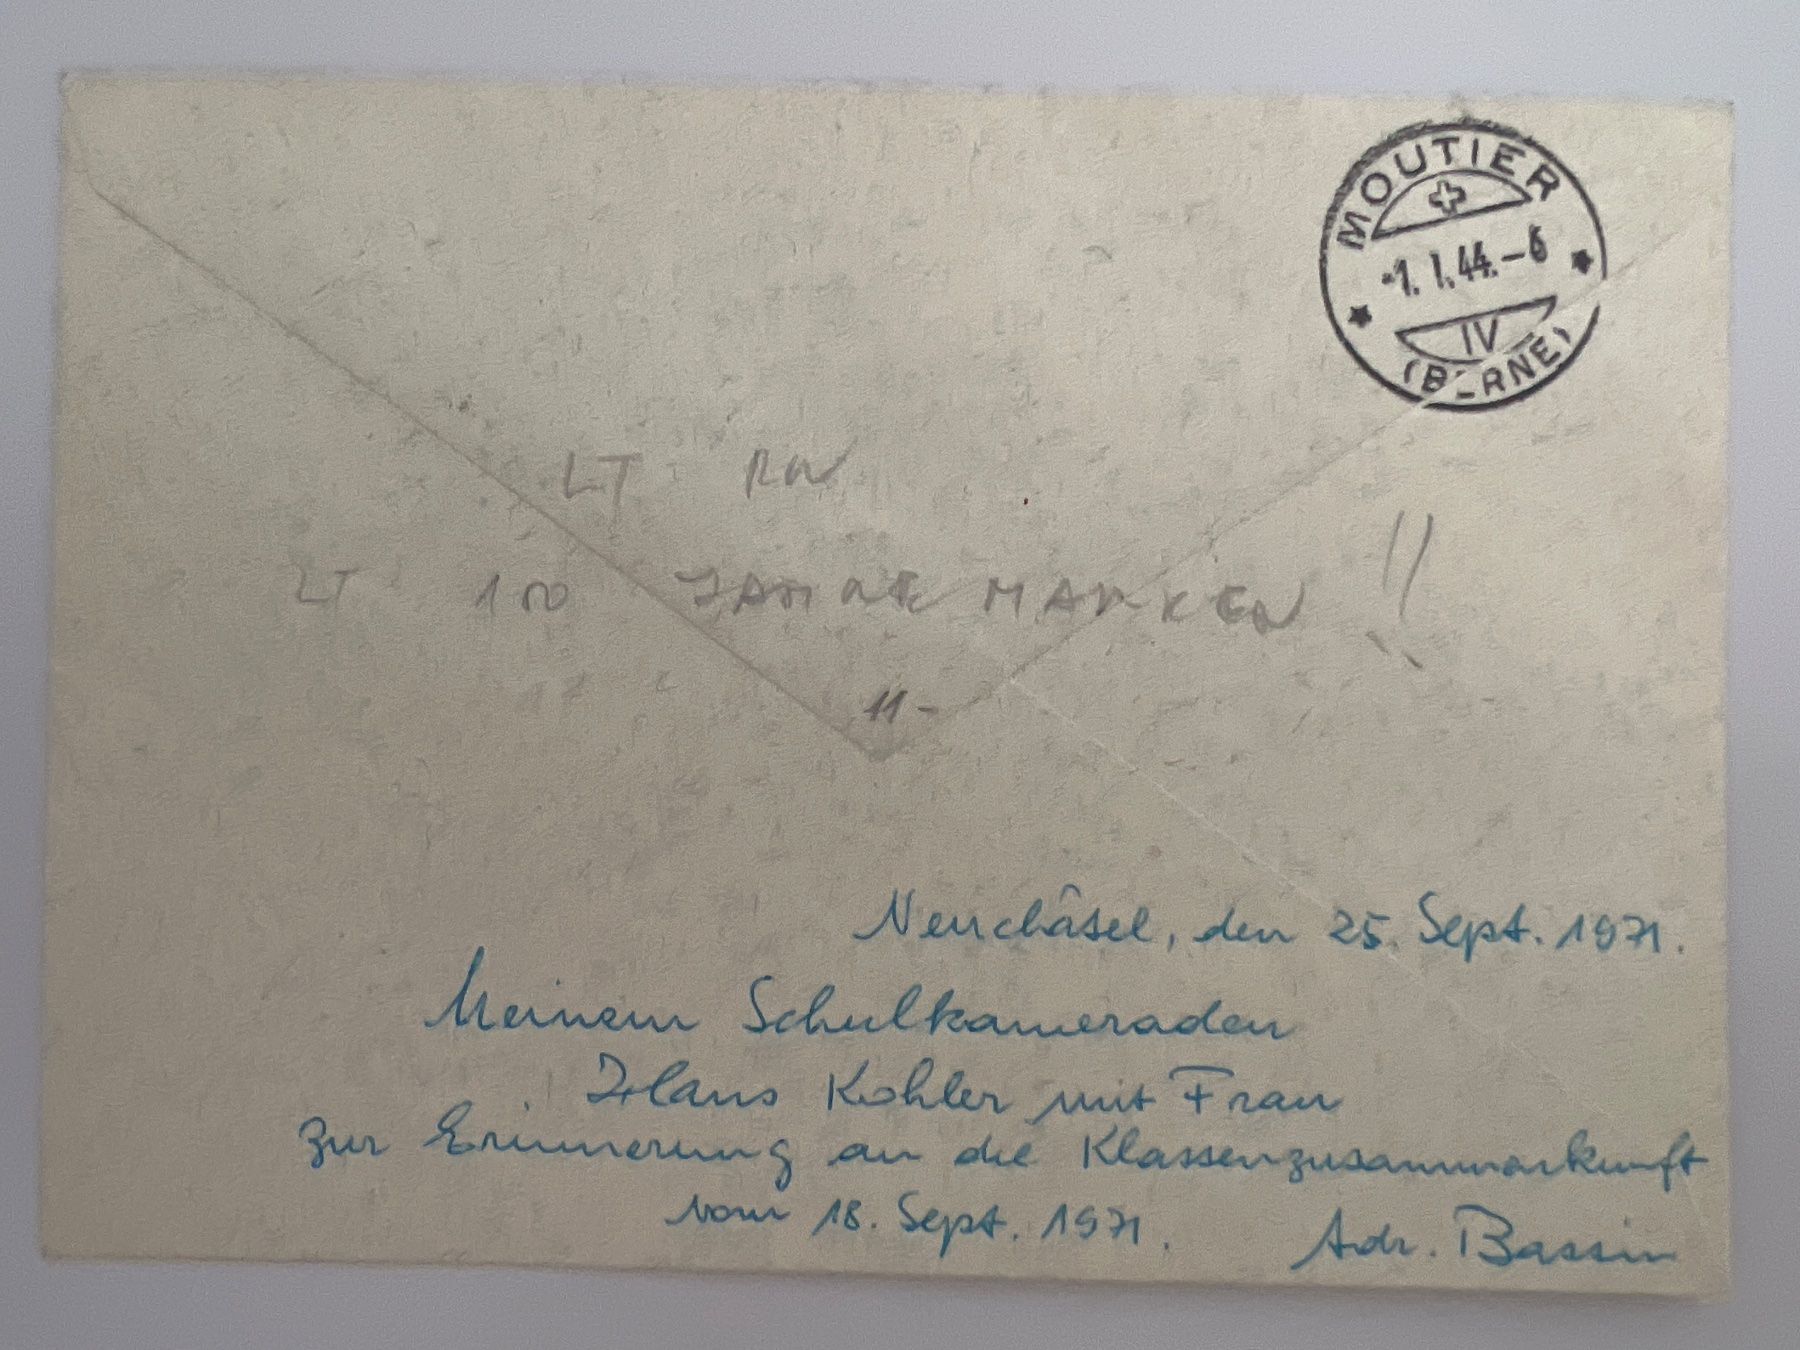 MOUTIER
-1. I. 44. - 6
IV
(BERNE)
LT
LT 100 JAHRE MARKEN !!
11-
Neuchâtel, den 25. Sept. 1971.
Meinem Schulkameraden
Hans Kohler mit Frau
zur Erinnerung an die Klassenzusammenkunft
vom 18. Sept. 1971.
Adr. Bassin